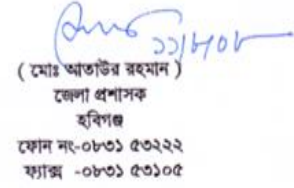 ১১/৮/০৮
( মোঃ আতাউর রহমান )
জেলা প্রশাসক
হবিগঞ্জ
ফোন নং-০৮৩১ ৫৩২২২
ফ্যাক্স -০৮৩১ ৫৩১০৫